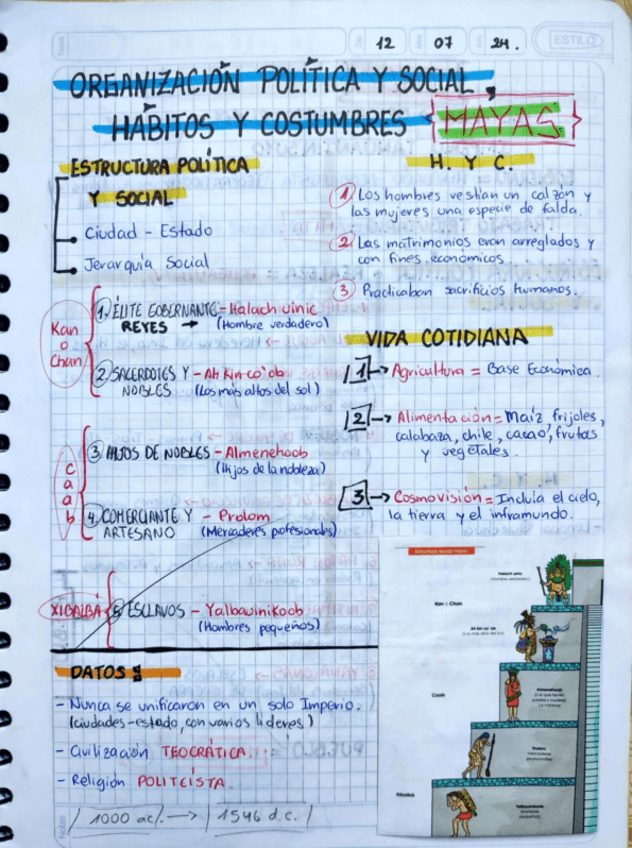 12 07 24.
ESTILO
ORGANIZACIÓN POLÍTICA Y SOCIAL,
HÁBITOS Y COSTUMBRES {MAYAS.}
ESTRUCTURA POLÍTICA
Y SOCIAL
Ciudad - Estado
Jerarquía Social
Kan
o
Chan
1. ÉLITE GOBERNANTE = Halach uinic
REYES → (Hombre verdadero)
2 SACERDOTES Y - Ah Kin co'ob
NOBLES (Los más altos del sol)
C
a
a
b
3 HIJOS DE NOBLES - Almenehoob
(Hijos de la nobleza)
4. COMERCIANTE Y - Prolom
ARTESANO (Mercaderes pofesionales)
XIBALBÁ
5 ESCLAVOS - Yalbauinikoob
(Hombres pequeños)
DATOS:
- Nunca se unificaron en un solo Imperio.
(ciudades-estado, con varios líderes)
- Civilización TEOCRÁTICA.
- Religión POLITEÍSTA.
/ 1000 ac/. → | 1546 d.c. |
H. Y C.
1 Los hombres vestían un calzón y
las mujeres una especie de falda.
2 Las matrimonios eran arreglados y
con fines económicos
3 Practicaban sacrificios humanos.
VIDA COTIDIANA
1 → Agricultura = Base Económica.
2 → Alimentación = Maíz frijoles,
calabaza, chile, cacao, frutas
y vegetales.
3 → Cosmovisión = Incluía el cielo,
la tierra y el inframundo.
Halach uinic
Kan o Chan
Caab
Xibalba